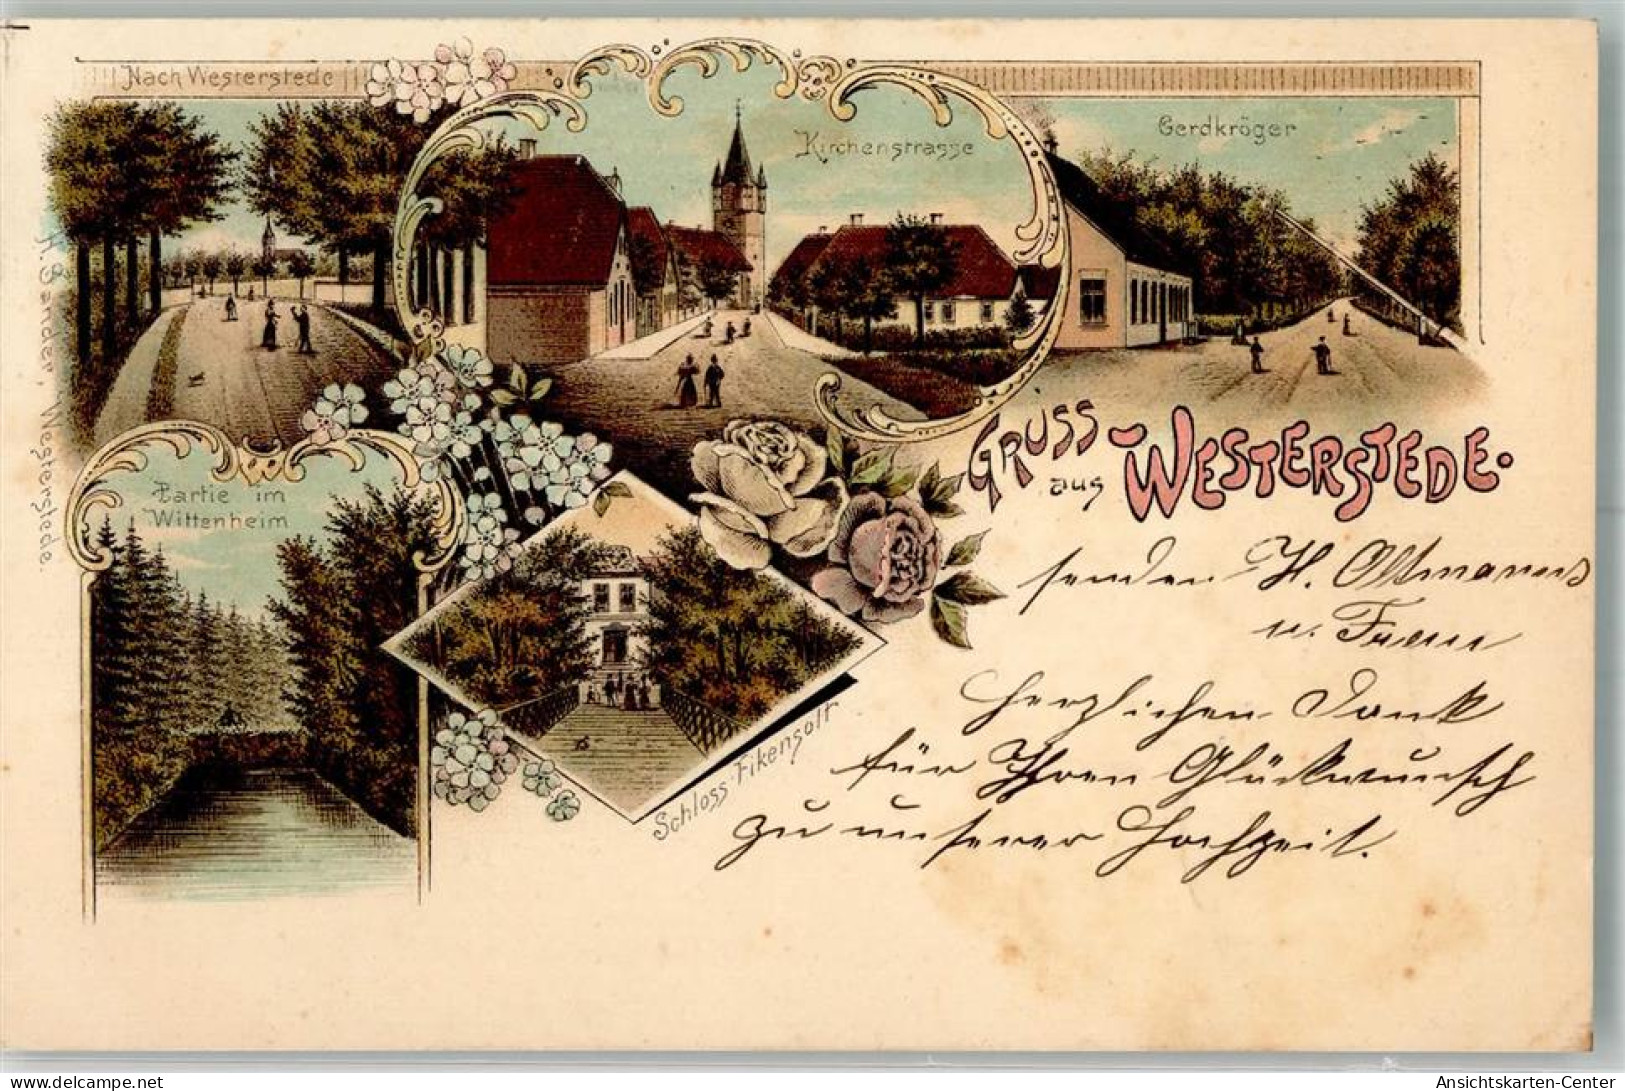 Nach Westerstede
Kirchenstrasse
Gerdkröger
H. Sander, Westerstede.
Partie im
Wittenheim
Schloss Fikensolt
GRUSS
aus WESTERSTEDE.
senden H. Oltmanns
u. Frau
Herzlichen Dank
für Ihren Glückwunsch
zu unserer Hochzeit.
delcampe.net
Ansichtskarten-Center